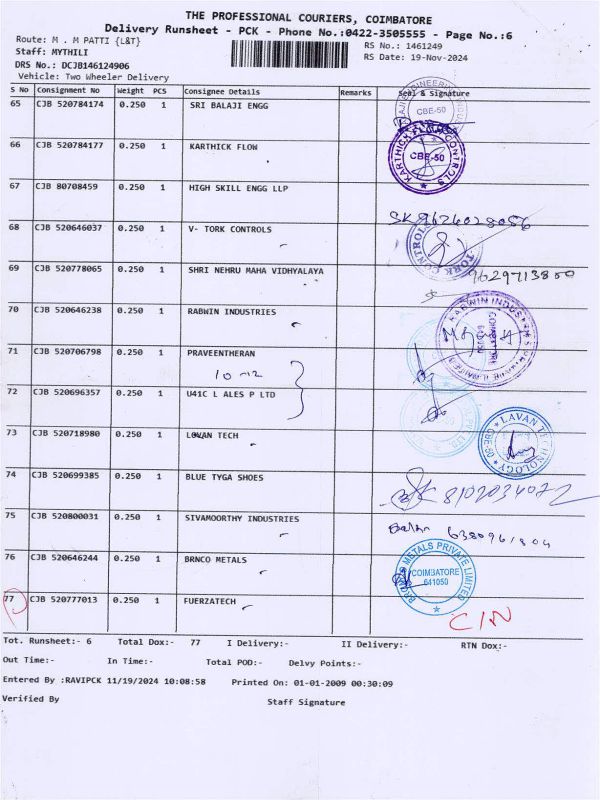 THE PROFESSIONAL COURIERS, COIMBATORE
Delivery Runsheet - PCK - Phone No.:0422-3505555 - Page No.:6
Route: M . M PATTI {L&T}
RS No.: 1461249
Staff: MYTHILI
RS Date: 19-Nov-2024
DRS No.: DCJB146124906
Vehicle: Two Wheeler Delivery
S No Consignment No Weight PCS Consignee Details Remarks Seal & Signature
65 CJB 520784174 0.250 1 SRI BALAJI ENGG
CBE-50
66 CJB 520784177 0.250 1 KARTHICK FLOW
KARTHICK FLOW CONTROLS
CBE-50
67 CJB 80708459 0.250 1 HIGH SKILL ENGG LLP
68 CJB 520646037 0.250 1 V- TORK CONTROLS
TORK CONTROLS
69 CJB 520778065 0.250 1 SHRI NEHRU MAHA VIDHYALAYA
9629713800
70 CJB 520646238 0.250 1 RABWIN INDUSTRIES
71 CJB 520706798 0.250 1 PRAVEENTHERAN
10-12
72 CJB 520696357 0.250 1 U41C L ALES P LTD
73 CJB 520718980 0.250 1 LOVAN TECH
LAVAN TECHNOLOGY
CBE-50
74 CJB 520699385 0.250 1 BLUE TYGA SHOES
75 CJB 520800031 0.250 1 SIVAMOORTHY INDUSTRIES
6380961804
76 CJB 520646244 0.250 1 BRNCO METALS
METALS PRIVATE LIMITED
COIMBATORE
641050
77 CJB 520777013 0.250 1 FUERZATECH
C/N
Tot. Runsheet:- 6 Total Dox:- 77 I Delivery:- II Delivery:- RTN Dox:-
Out Time:- In Time:- Total POD:- Delvy Points:-
Entered By :RAVIPCK 11/19/2024 10:08:58 Printed On: 01-01-2009 00:30:09
Verified By Staff Signature